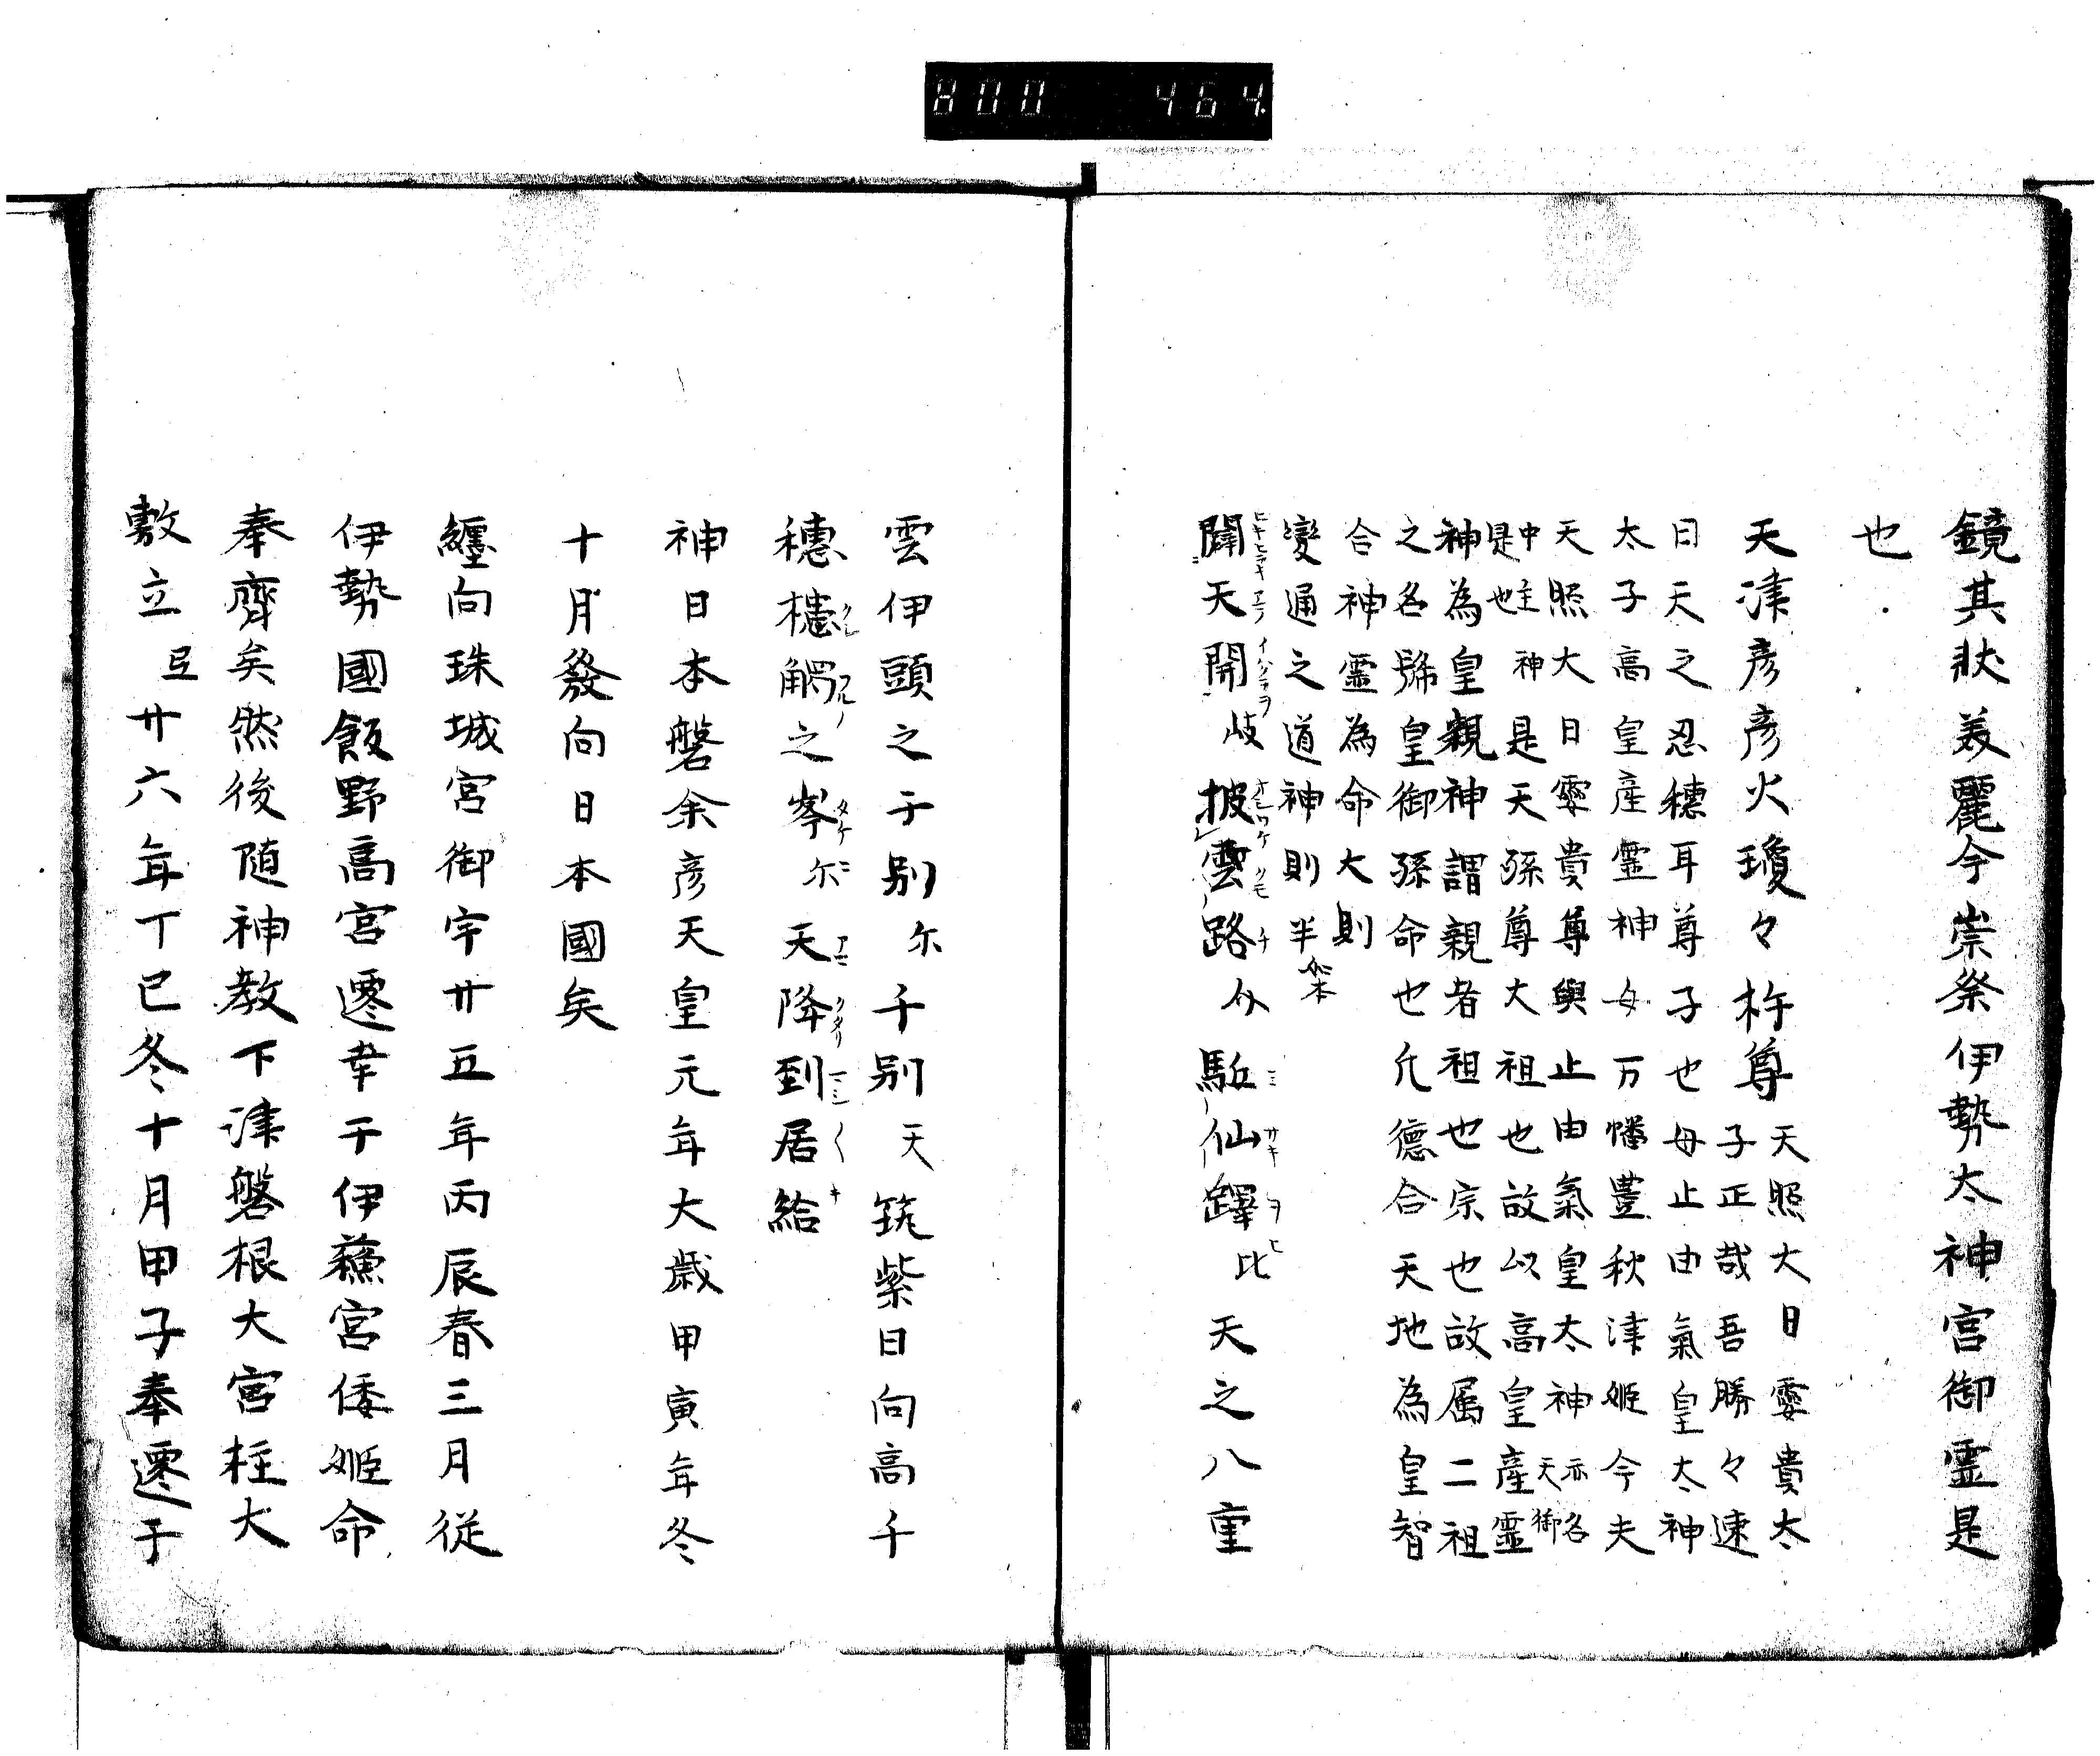 800 464
鏡其狀美麗今崇祭伊勢太神宮御霊是
也
天津彦彦火瓊々杵尊
天照大日孁貴太
子正哉吾勝々速
日天之忍穗耳尊子也母止由氣皇太神
太子高皇産霊神女万幡豊秋津姬今夫
天照大日孁貴尊與止由氣皇太神
亦名
天御
中主神
是也
是天孫尊大祖也故以高皇産霊
神為皇親神謂親者祖也宗也故属二祖
之名號皇御孫命也凢德合天地為皇智
合神霊為命大則
變通之道神則半
如本
闢天開岐披雲路仐駈仙蹕比天之八重
雲伊頭之于别尓千别天筑紫日向高千
穗槵觸之峯尓天降到居給
神日本磐余彦天皇元年大歲甲寅年冬
十月發向日本國矣
纏向珠城宮御宇廿五年丙辰春三月従
伊勢國飯野高宮遷幸于伊蘓宮倭姬命
奉齊矣然後随神教下津磐根大宮柱大
敷立弖廿六年丁巳冬十月甲子奉遷于